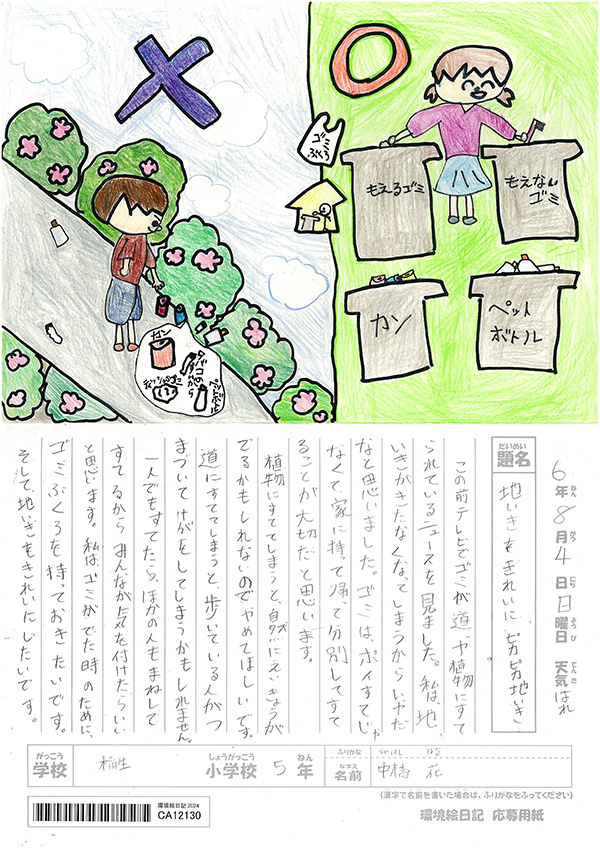 ゴミ
ぶくろ
もえるゴミ
もえない
ゴミ
カン
ペット
ボトル
カン
タバコの
すいがら
ペットボトル
ティッシュのゴミ
6年8月4日日曜日 天気はれ
ねん
がつ
にち
ようび
てんき
だいめい
題名
地いきをきれいに、ピカピカ地いき
この前テレビでゴミが道や植物にすて
られているニュースを見ました。私は、地
いきがきたなくなってしまうからいやだ
なと思いました。ゴミは、ポイすてじゃ
なくて、家に持って帰って分別してすて
ることが大切だと思います。
植物にすててしまうと、自然にえいきょうが
でるかもしれないのでやめてほしいです。
道にすててしまうと、歩いている人がつ
まづいてけがをしてしまうかもしれません。
一人でもすてたら、ほかの人もまねして
すてるからみんなが気を付けたらいい
と思います。私は、ゴミがでた時のために、
ゴミぶくろを持っておきたいです。
そして、地いきをきれいにしたいです。
がっこう
学校
稲生
しょうがっこう
小学校
5
ねん
年
ふりがな
なかはし はな
なまえ
名前
花
(漢字で名前を書いた場合は、ふりがなをふってください)
環境絵日記 2024
CA12130
環境絵日記 応募用紙